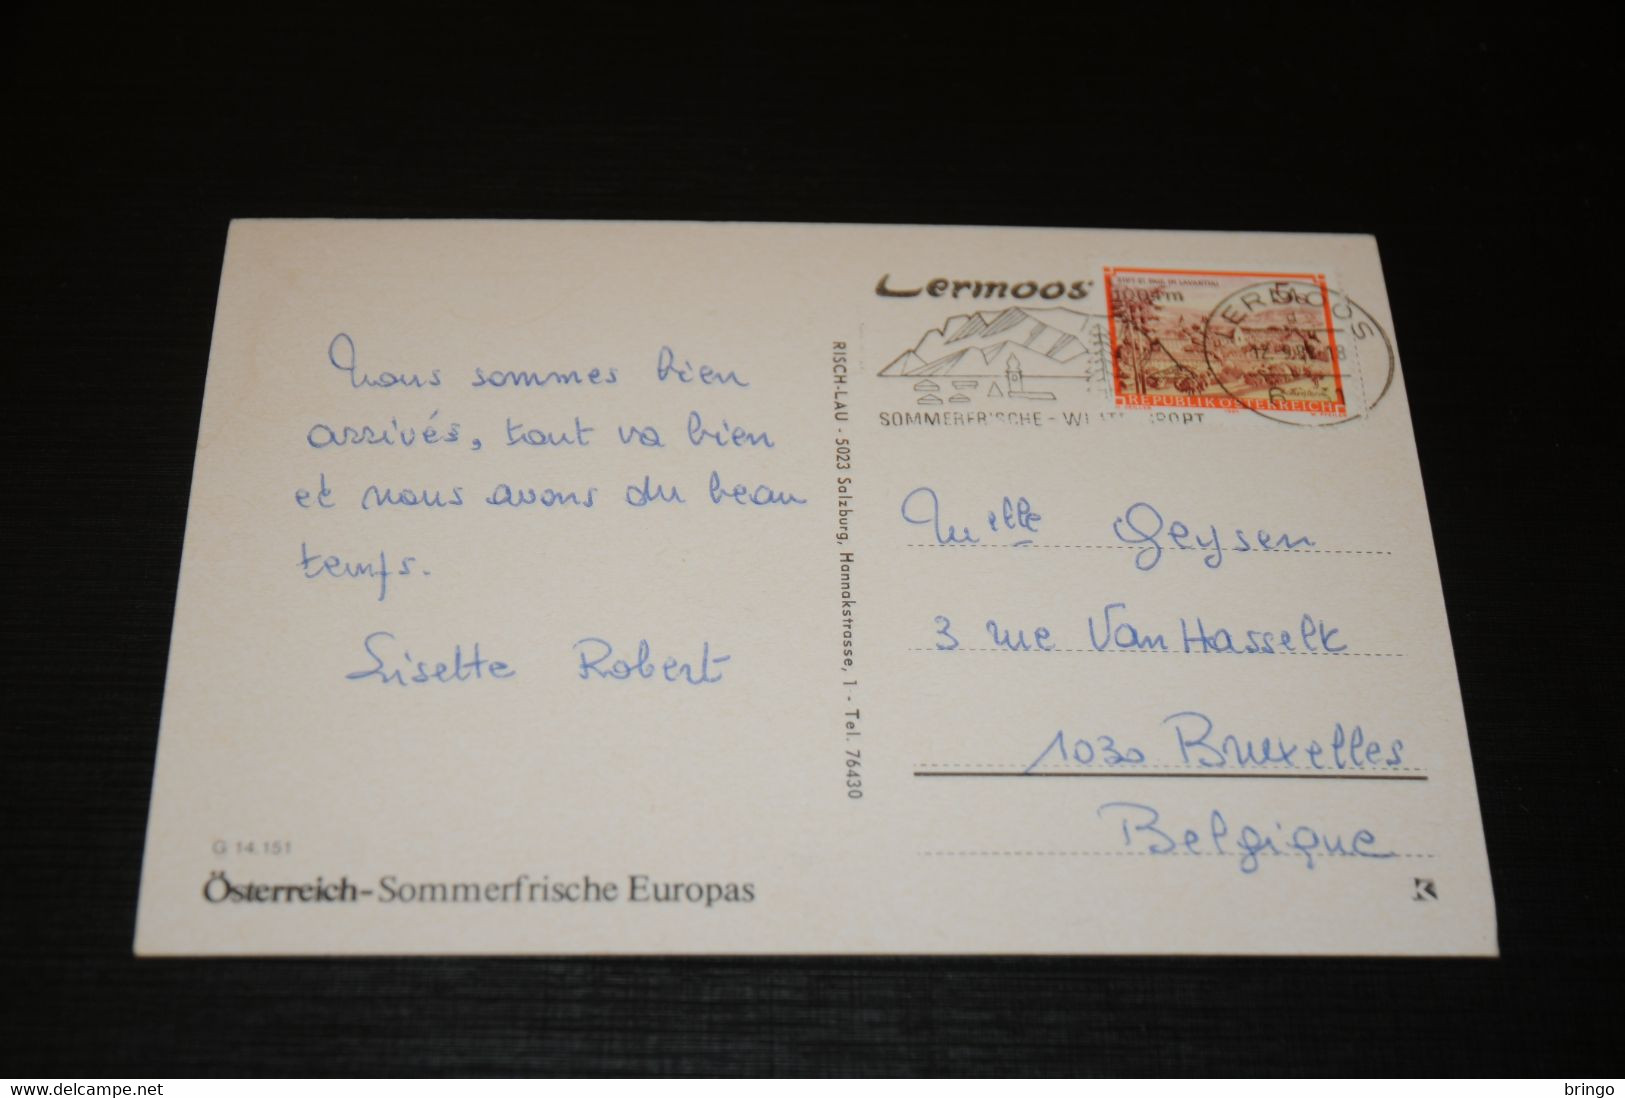 Lermoos
1004 m
SOMMERFRISCHE - WINTERSPORT
STIFT ST. PAUL IM LAVANTTAL
5
REPUBLIK ÖSTERREICH
LERMOOS
12. 9.8 -18
Nous sommes bien
arrivés, tout va bien
et nous avons du beau
temps.
Lisette Robert
RISCH-LAU - 5023 Salzburg, Hannakstrasse, 1 - Tel. 76430
Melle Geysen
3 rue Van Hasselt
1030 Bruxelles
Belgique
G 14.151
Österreich-Sommerfrische Europas
K
delcampe.net
bringo